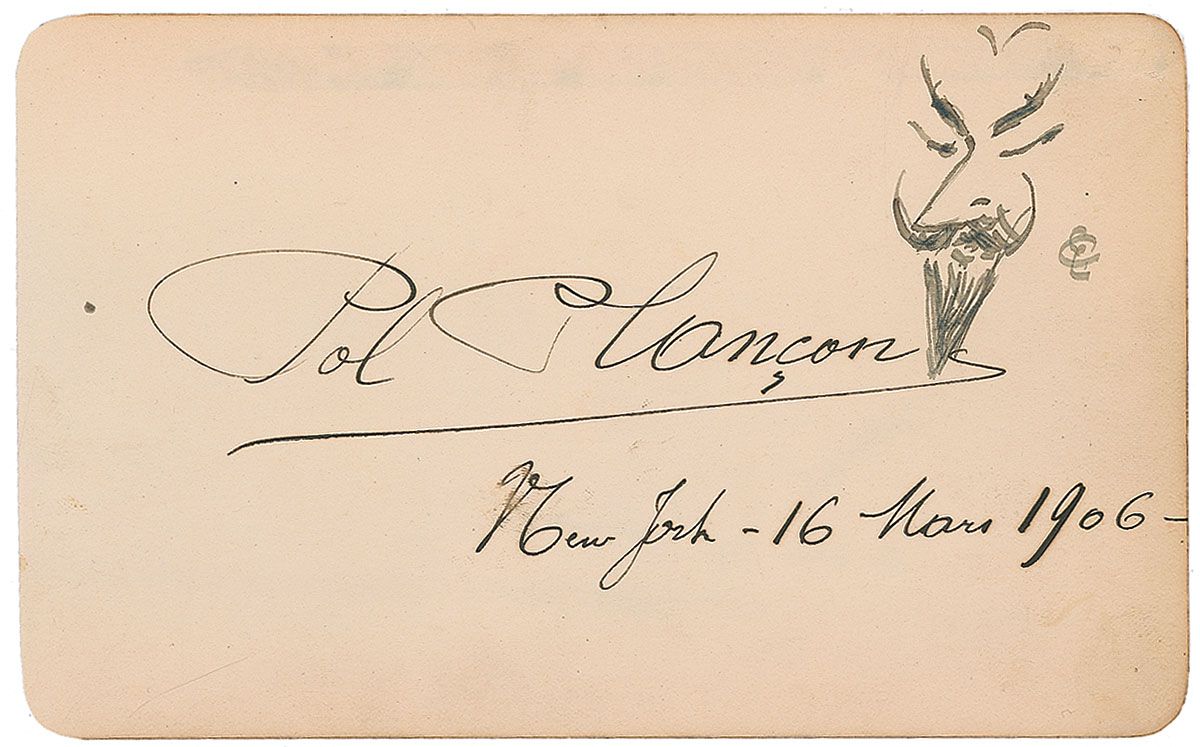 Pol Plançon
New York - 16 Mars 1906 -